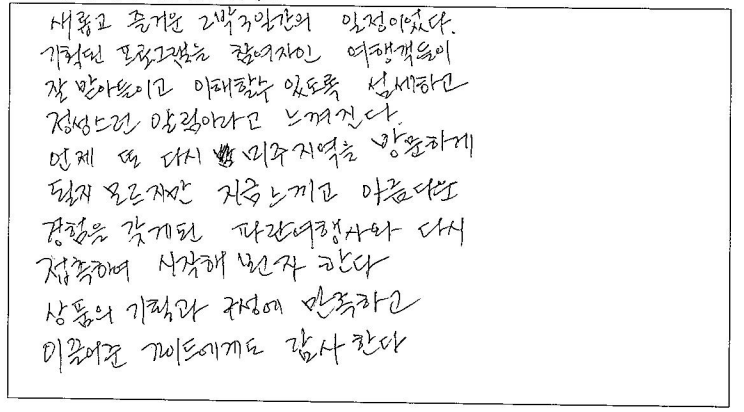 새롭고 즐거운 2박3일간의 일정이었다.
기획된 프로그램는 참여자인 여행객들이
잘 받아들이고 이해할수 있도록 섬세하고
정성스런 알림아라고 느껴진다.
언제 또 다시 미주지역을 방문하게
될지 모르지만 지금느끼고 아름다운
경험을 갖게된 파란여행사와 다시
접촉하여 시작해 보고자 한다
상품의 기획과 구성에 만족하고
이끌어준 가이드에게도 감사한다